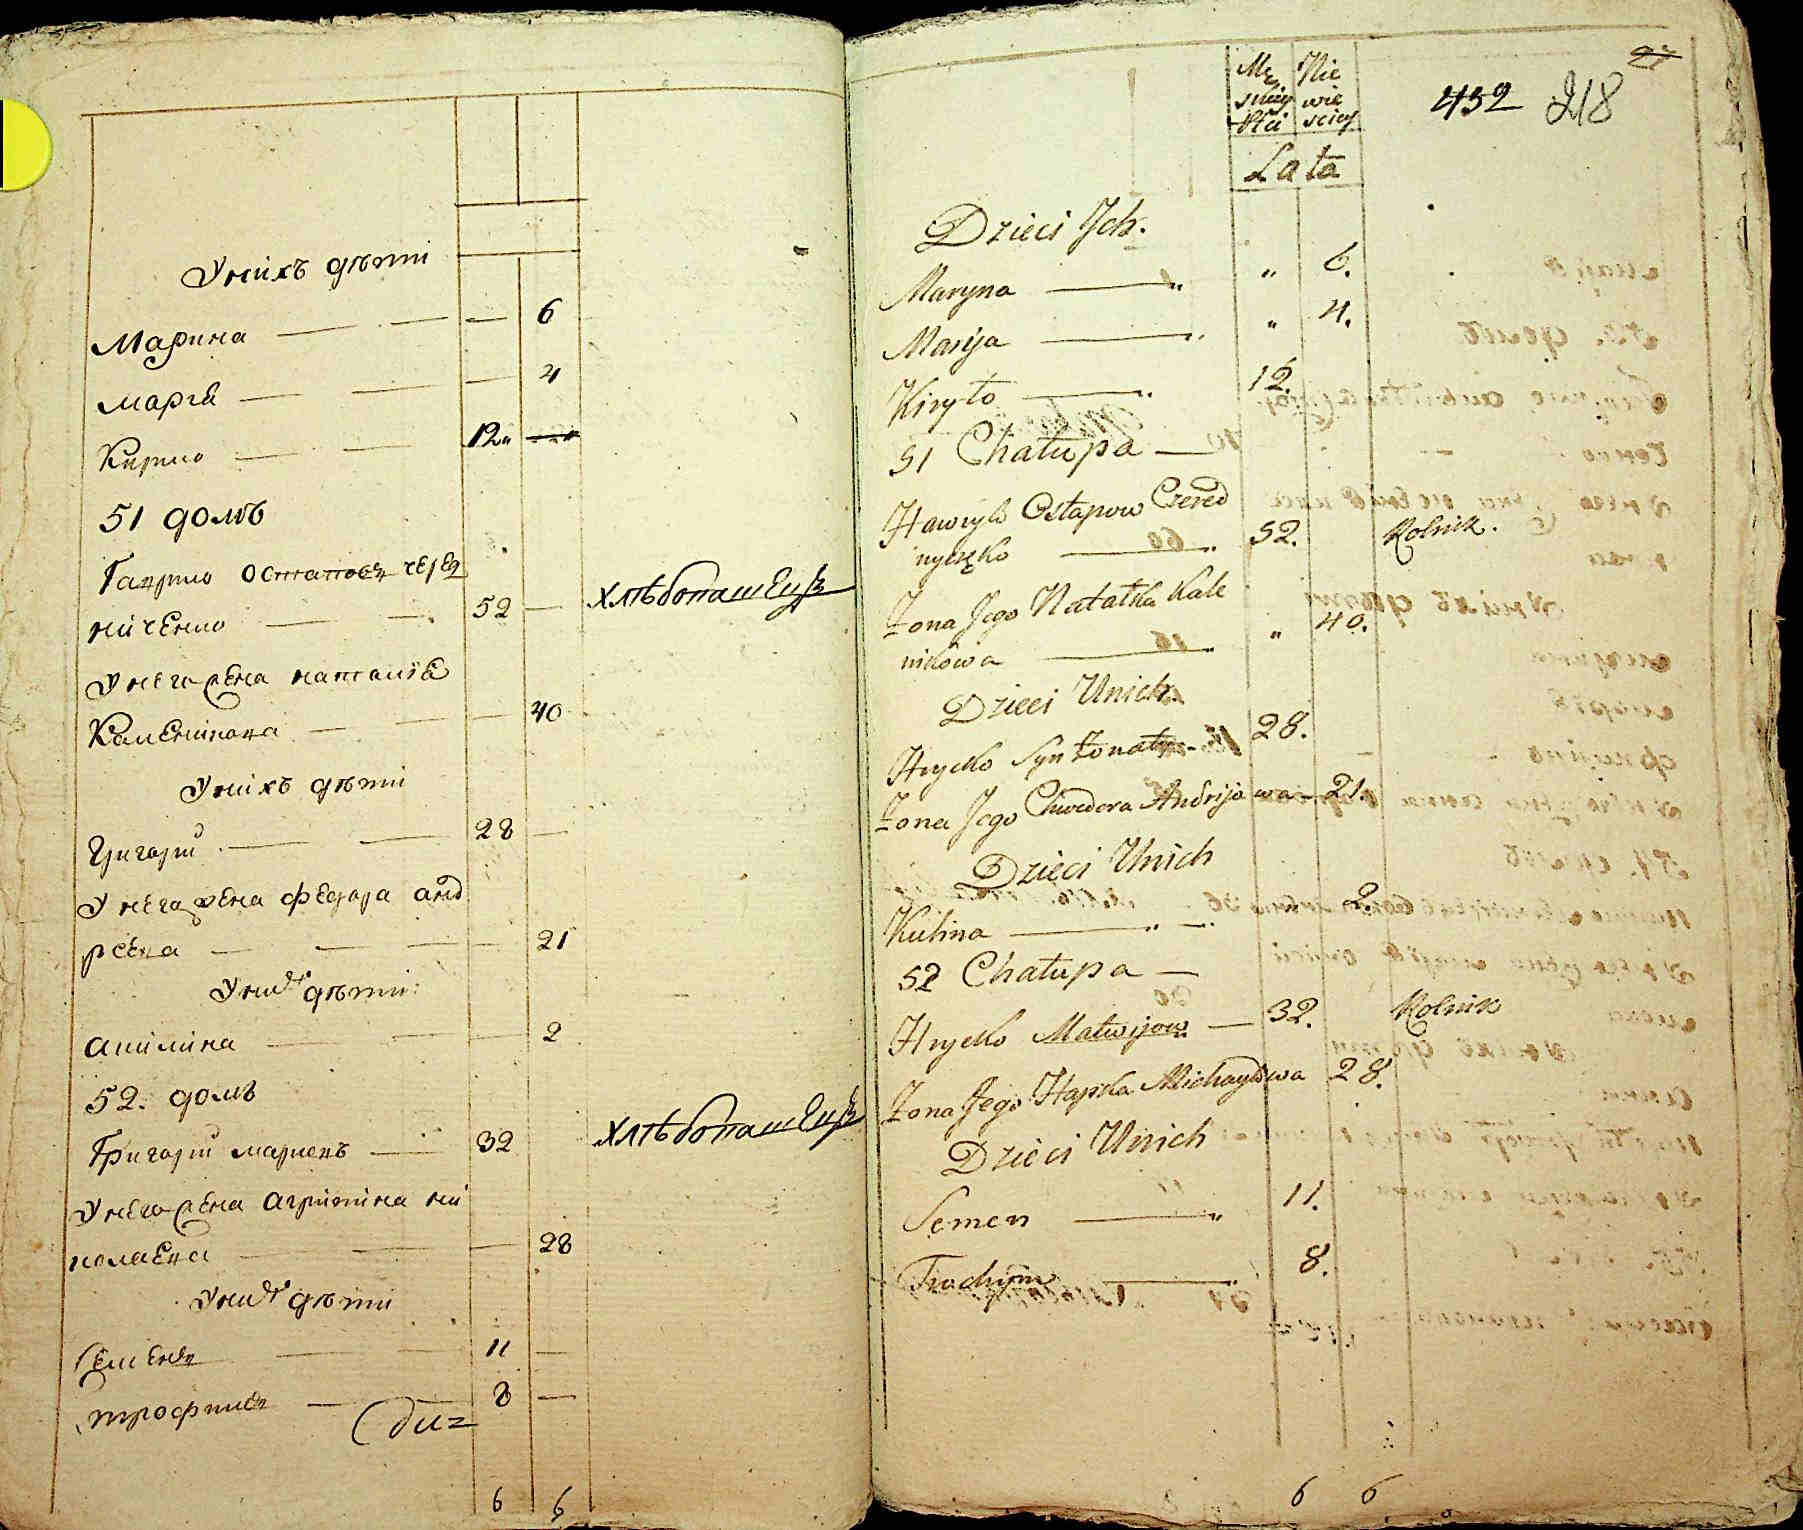 Унихъ дѣти
Марина — — — 6
Марїя — — — 4
Кирило — — 12„ —
51 домъ
Гаврило Остаповъ черед
ниченко — — 52 — хлѣбопашецъ
Унего жена наталїя
Калєникова — — — 40
Унихъ дѣти
Григорїй — — 28 —
Унего жена федора анд
рєєва — — — — 21
Унихъ дѣти:
акилина — — — 2
52. домъ
Григорїй марковъ — 32 хлѣбопашецъ
Унего жена агрипина ни
колаєва — — — 28
Унихъ дѣти
Семенъ — — 11 —
трофимъ — 8 —
6 6
Mę Nie
skiej wie
Płci sciej
Lata
27
432 218
Dzieci Jch.
Maryna — „ „ 6.
Marija — „ 4.
Kiryło — 12.
51 Chałupa —
Hawryło Ostapow Czered
nyczęko — 52. Rolnik.
Żona Jego Natałka Kale
nikowa — „ 40.
Dzieci Unich
Hrycko Syn Żonaty — 28.
Żona Jego Chwedora Andrijowa — 21.
Dzieci Unich
Kulina — 2.
52 Chałupa —
Hrycko Matwijow — 32. Rolnik
Żona Jego Hapka Michayłowa 28.
Dzieci Unich
Semen — „ 11.
Trochym — 8.
6 6